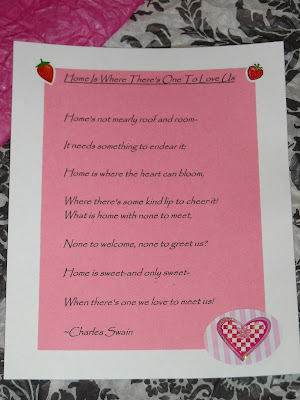 Home Is Where There's One To Love Us
Home's not mearly roof and room-
It needs something to endear it;
Home is where the heart can bloom,
Where there's some kind lip to cheer it!
What is home with none to meet,
None to welcome, none to greet us?
Home is sweet-and only sweet-
When there's one we love to meet us!
~Charles Swain